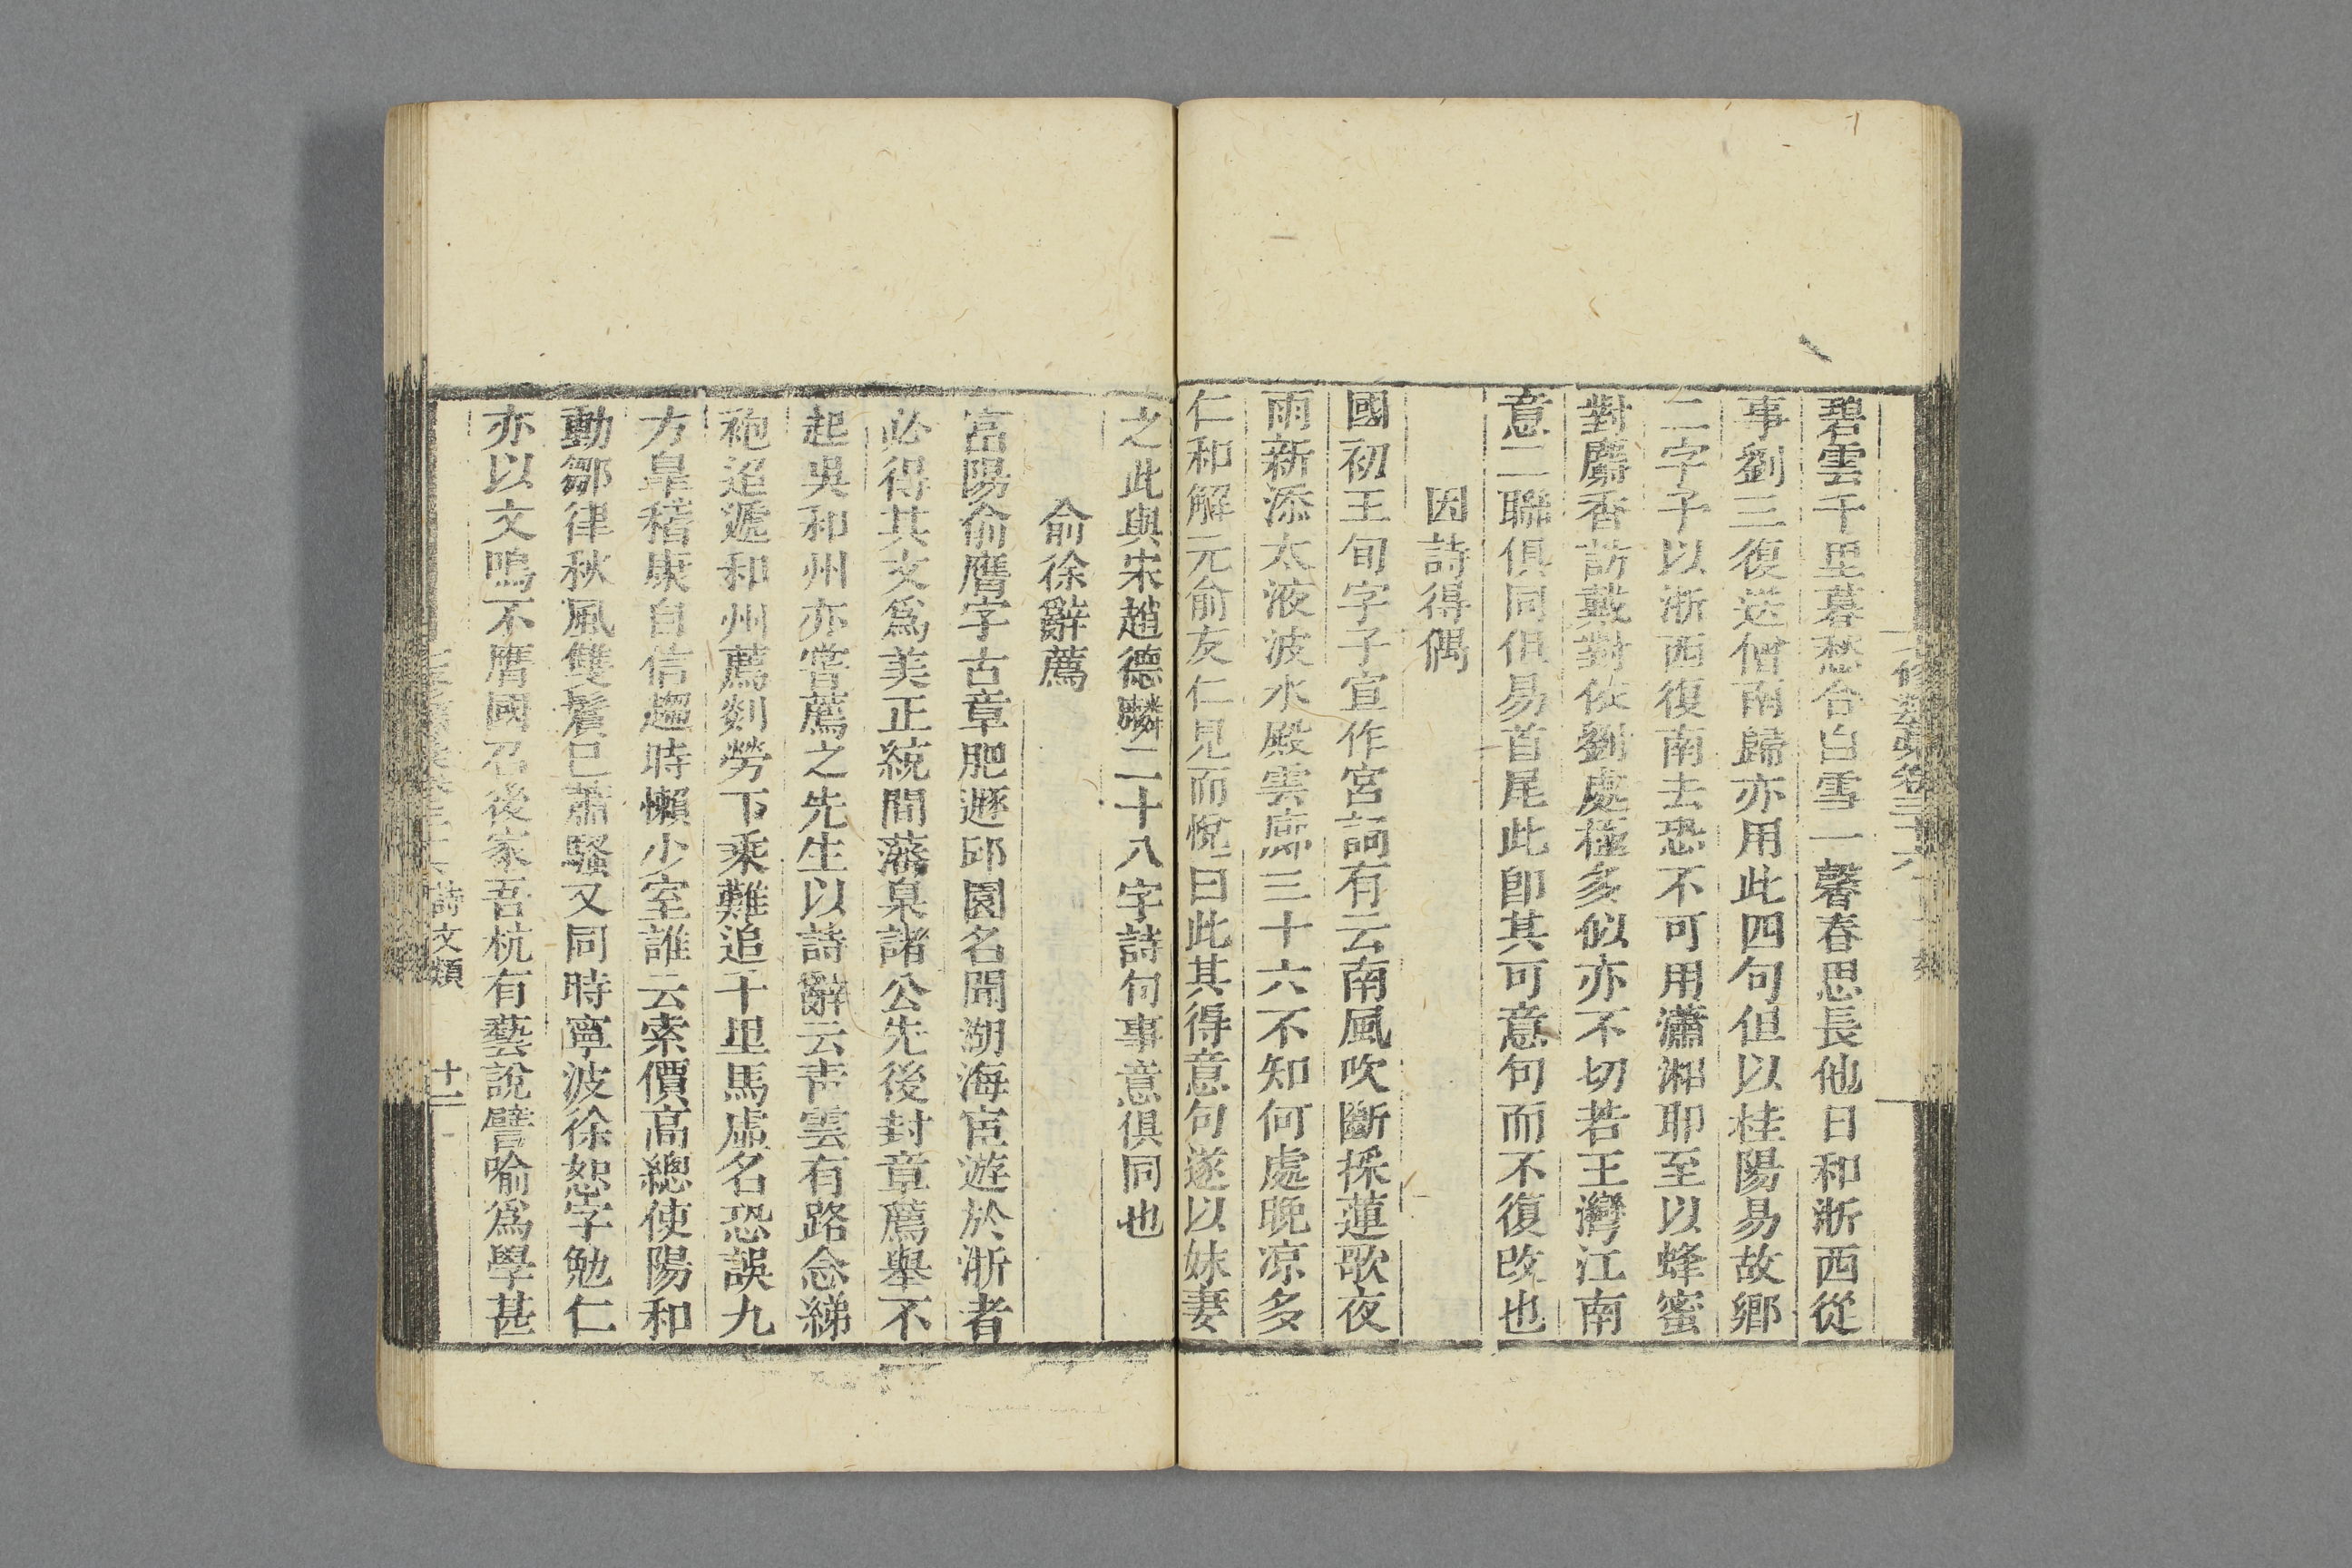 碧雲千里暮愁合白雪一聲春思長他日和浙西從
事劉三復送僧南歸亦用此四句但以桂陽易故鄉
二字予以浙西復南去恐不可用瀟湘耶至以蜂蜜
對麝香訪戴對依劉處極多似亦不切若王灣江南
意二聯俱同但易首尾此卽其可意句而不復改也
因詩得偶
國初王旬字子宣作宮詞有云南風吹斷採蓮歌夜
雨新添太液波水殿雲廊三十六不知何處晚凉多
仁和解元俞友仁見而悅曰此其得意句遂以妹妻
之此與宋趙德麟二十八字詩句事意俱同也
俞徐辭薦
富陽俞膺字古章肥遯邱園名聞湖海宦遊於浙者
必得其文爲美正統間藩臬諸公先後封章薦舉不
起吳和州亦嘗薦之先生以詩辭云靑雲有路念綈
袍迢遞和州薦剡勞下乘難追千里馬虛名恐誤九
方臯稽康自信趨時懶少室誰云索價高總使陽和
動鄒律秋風雙鬢已蕭騷又同時寧波徐恕字勉仁
亦以文鳴不膺國召後家吾杭有藝說譬喻爲學甚
詩文類
十二